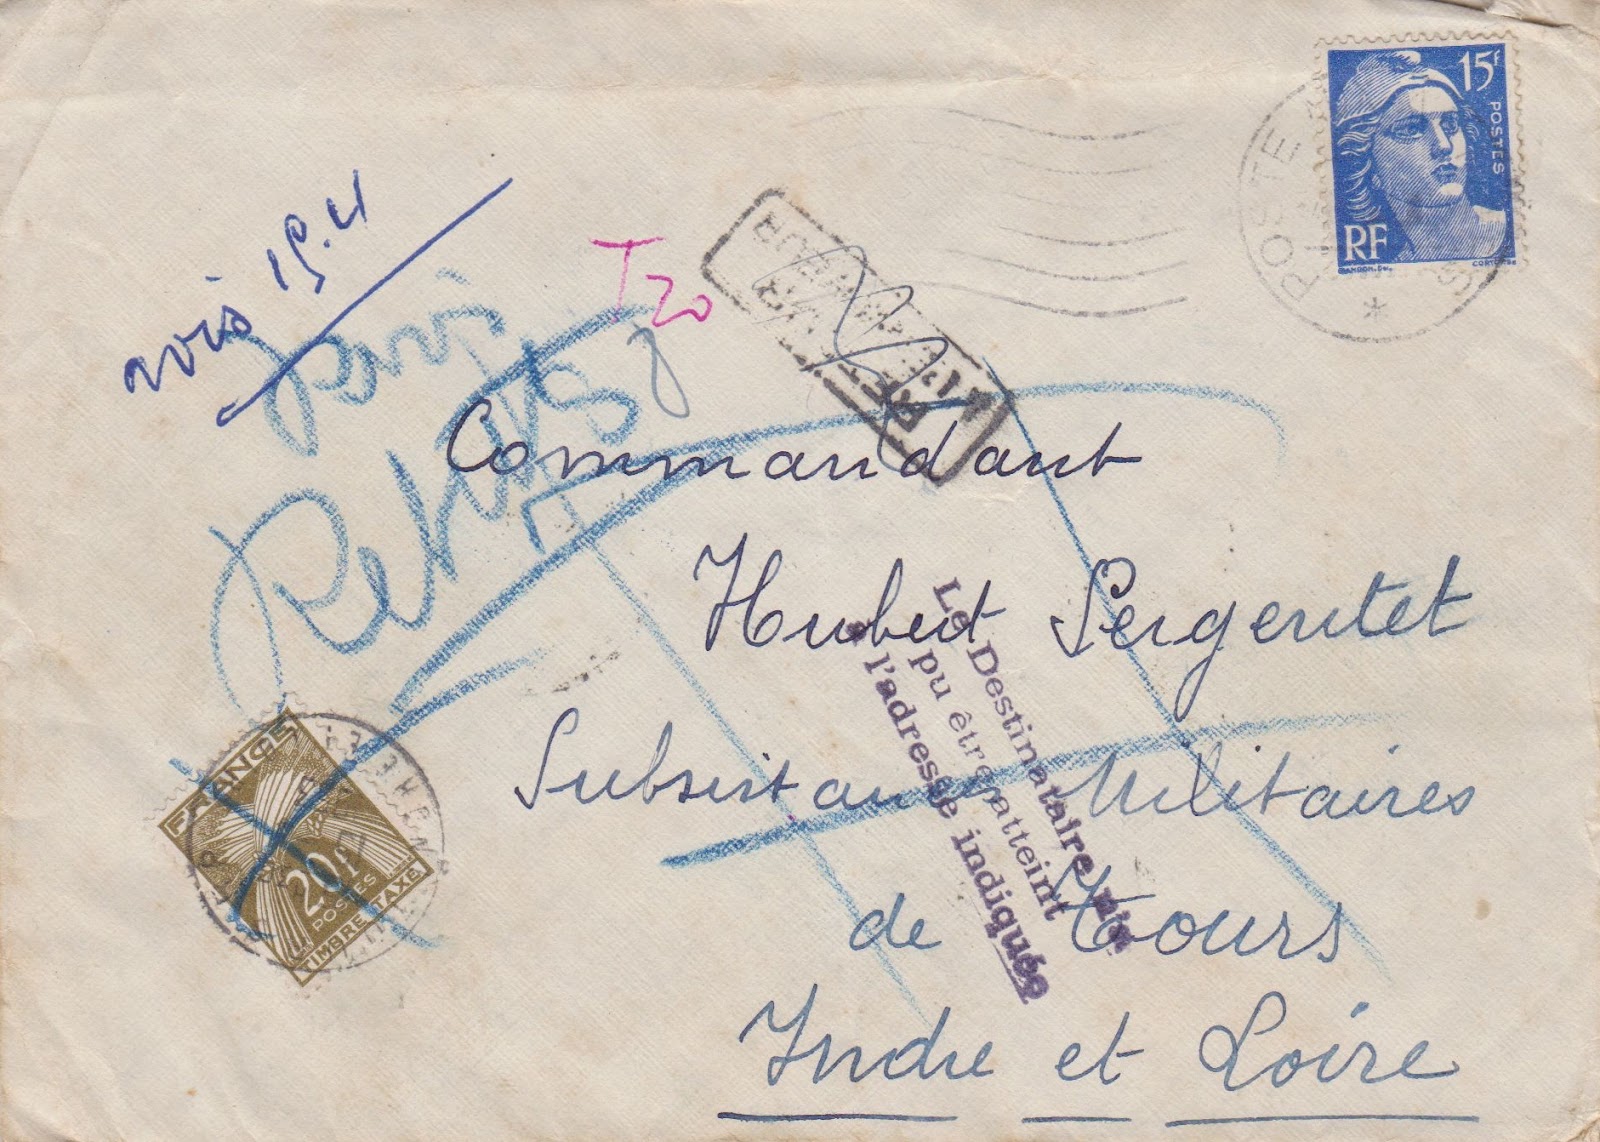 15f
POSTES
RF
POSTE
avis 15.4
T20
Commandant
Hubert Sergentet
Subsistances Militaires
de Tours
Indre et Loire
Le Destinataire n'a
pu être atteint
à l'adresse indiquée
FRANCE
20f
POSTES
TIMBRE TAXE